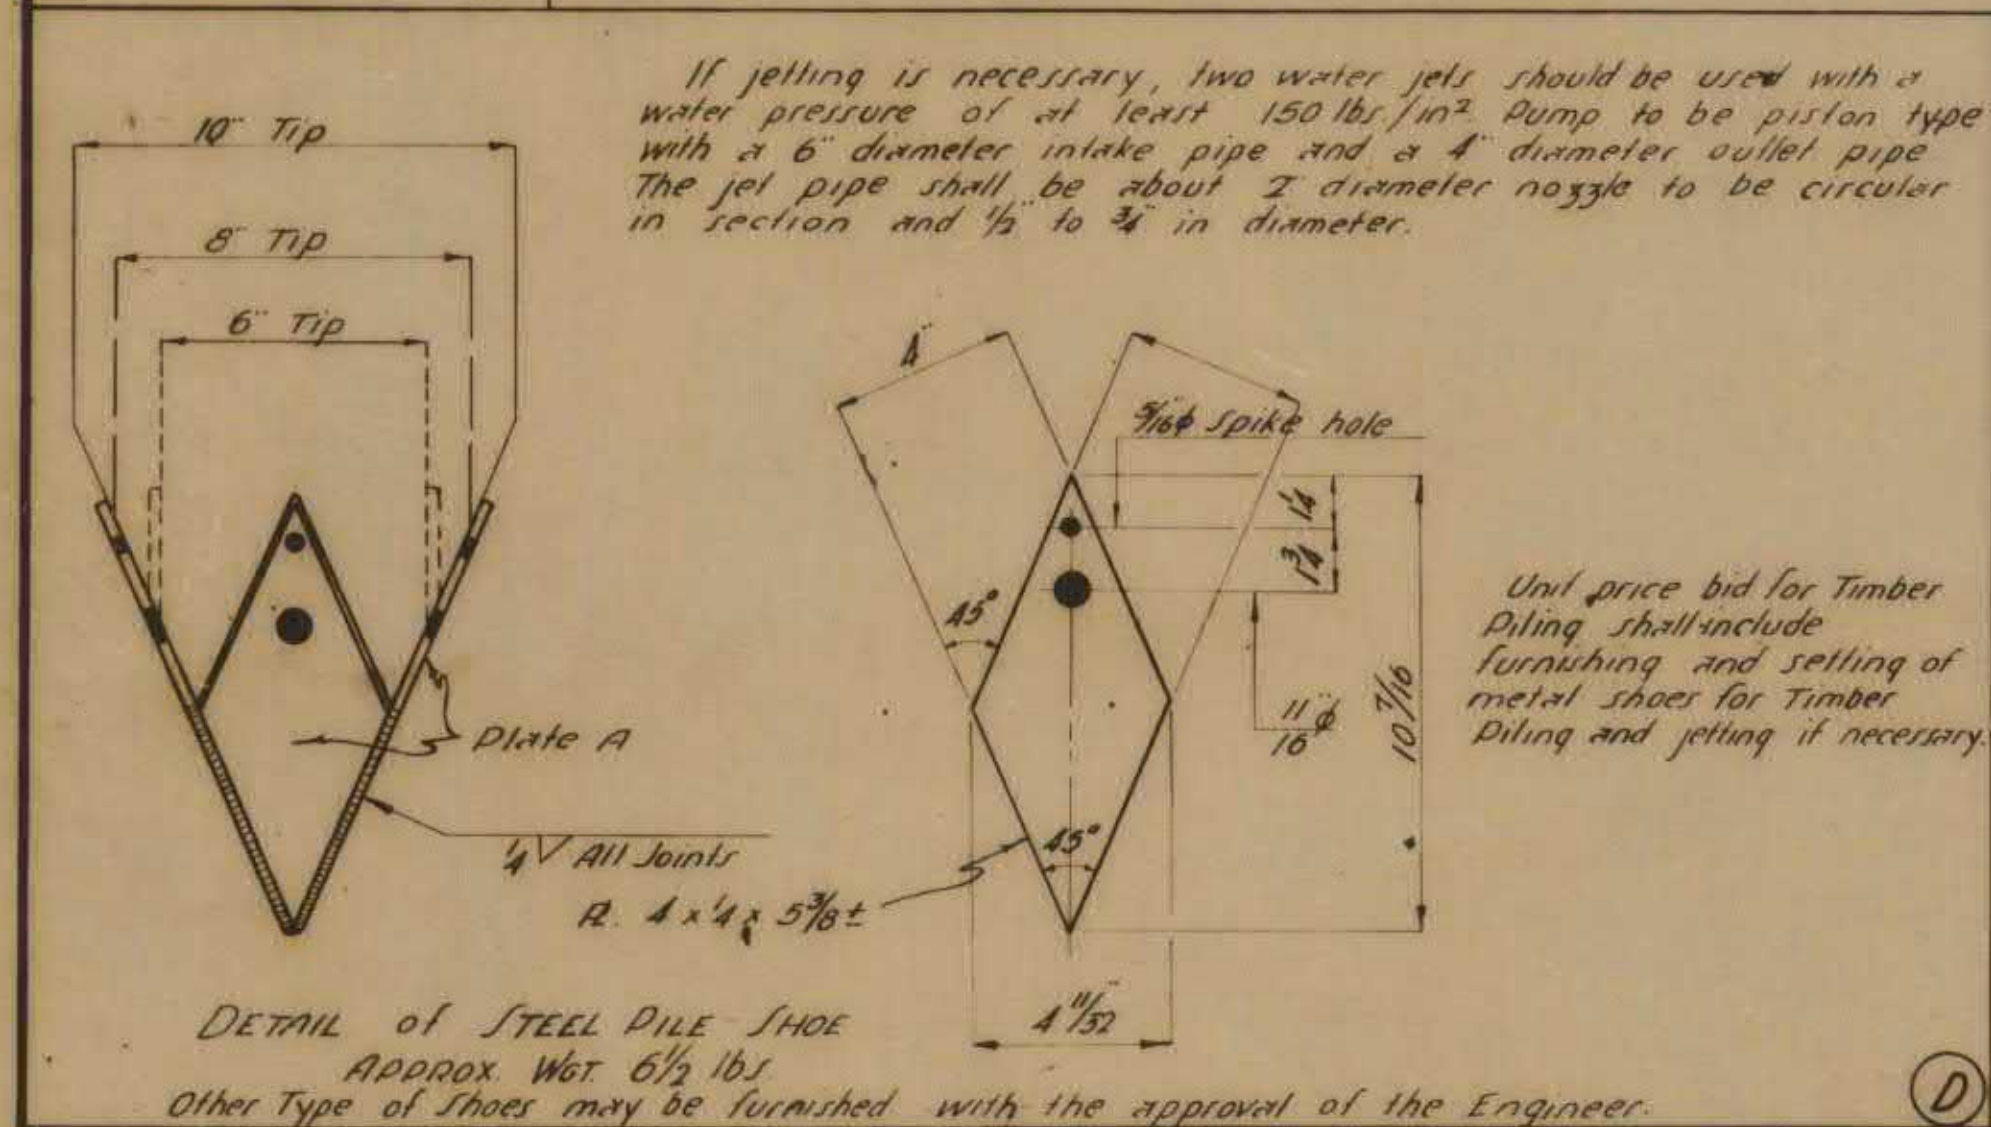 If jetting is necessary, two water jets should be used with a
water pressure of at least 150 lbs/in² Pump to be piston type
with a 6" diameter intake pipe and a 4" diameter outlet pipe
The jet pipe shall be about 2" diameter nozzle to be circular
in section and 1/2" to 3/4" in diameter.
10" Tip
8" Tip
6" Tip
Plate A
1/4 V All Joints
4"
5/16"φ Spike hole
1/4
3/4
45°
11"/16 φ
10 7/16
45°
PL. 4 x 1/4 x 5 3/8 ±
4 11/32"
Unit price bid for Timber
Piling shall include
furnishing and setting of
metal shoes for Timber
Piling and jetting if necessary.
DETAIL of STEEL PILE SHOE
APPROX. WGT. 6 1/2 lbs
Other Type of Shoes may be furnished with the approval of the Engineer.
D